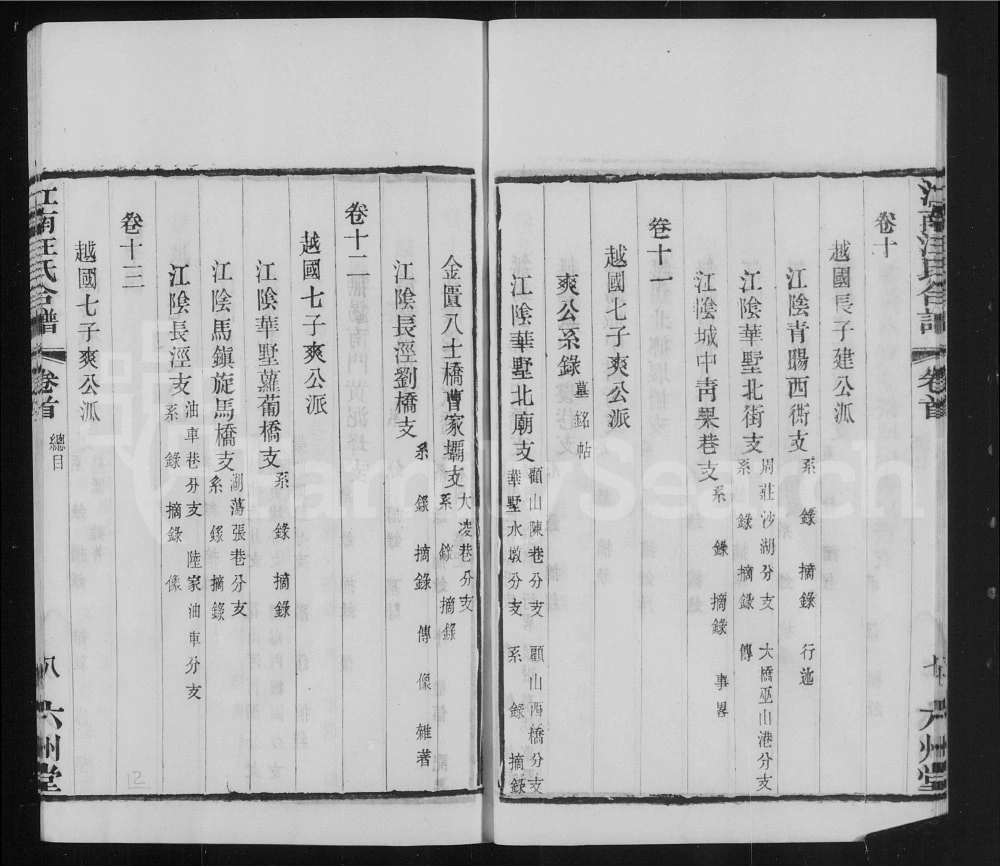 江南汪氏合譜 卷首 六州堂
卷十
越國長子建公派
江陰青暘西街支 系錄 摘錄 行述
江陰華墅北街支 周莊沙湖分支 大橋巫山港分支
系錄 摘錄 傳
江陰城中青果巷支 系錄 摘錄 事畧
卷十一
越國七子爽公派
爽公系錄 墓銘帖
江陰華墅北廟支 顧山陳巷分支 顧山西橋分支
華墅水墩分支 系錄 摘錄
金匱八士橋曹家壩支 大凌巷分支
系錄 摘錄
江陰長涇劉橋支 系錄 摘錄 傳 像 雜著
卷十二
越國七子爽公派
江陰華墅蘿蔔橋支 系錄 摘錄
江陰馬鎮旋馬橋支 湖蕩張巷分支
系錄 摘錄
江陰長涇支 油車巷分支 陸家油車分支
系錄 摘錄 像
卷十三
越國七子爽公派
江南汪氏合譜 卷首 總目 八 六州堂
FamilySearch